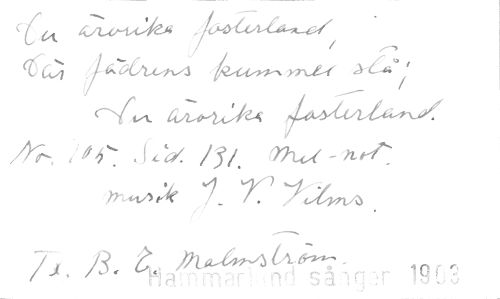 Du ärorika fosterland,
Där fädrens kummel stå;
Du ärorika fosterland.
No. 105. Sid. 131. Mel-not.
musik J. V. Vilms.
Tx. B. E. Malmström.
Hammarlund sånger 1903